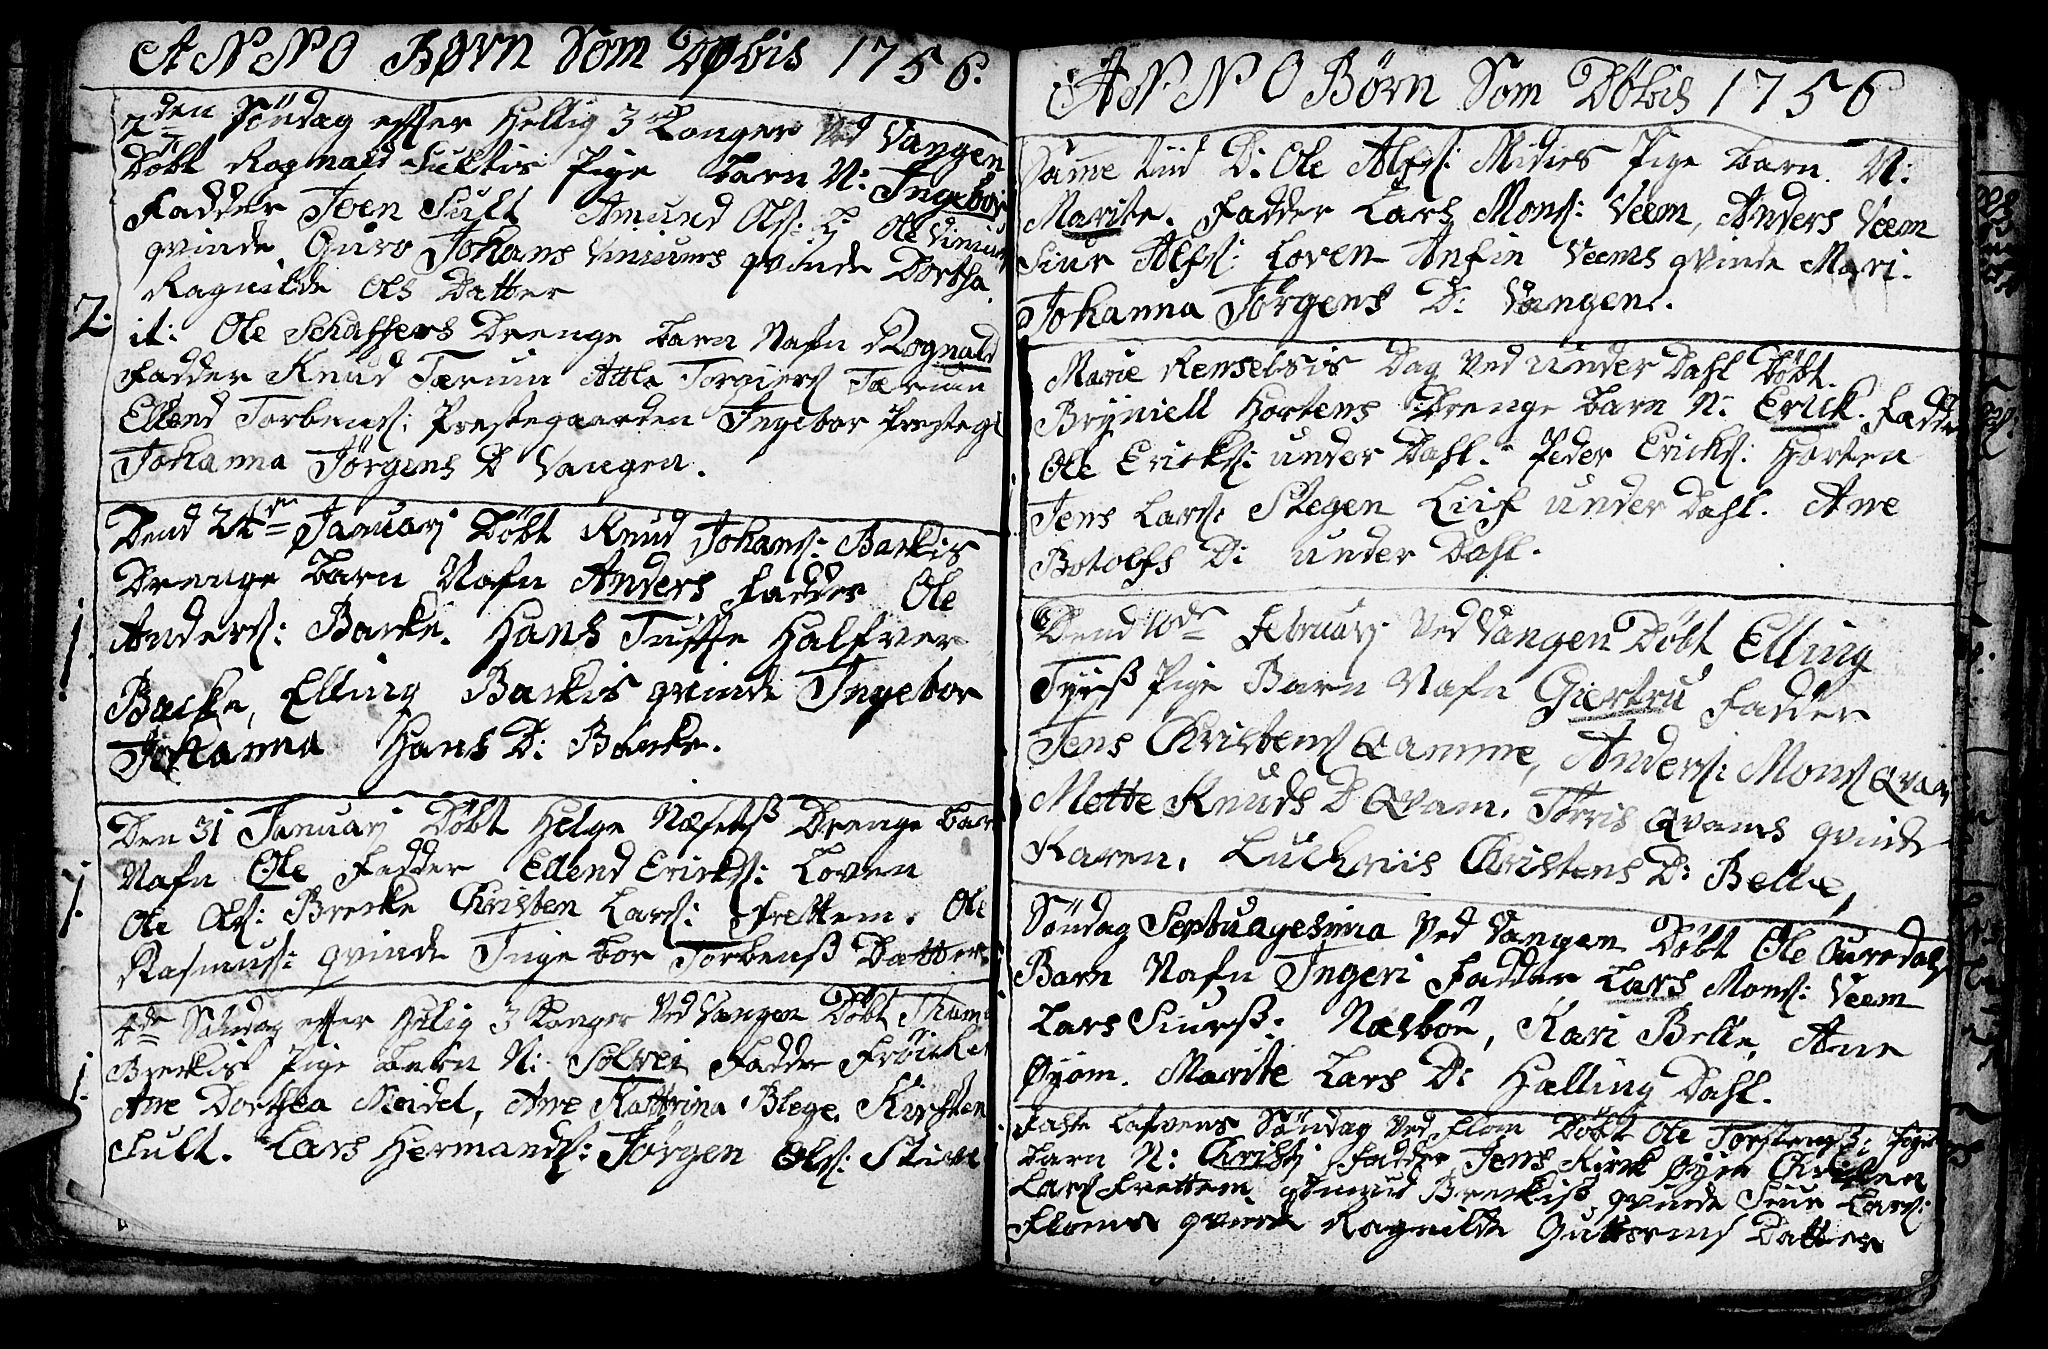 ANNO Børn Som Døbis 1756.
2den Söndag effter Hellig 3 Konger Ved Vangen
Döbt Ragnald Sultis Pige barn N: Ingebor
Fadder Joen Sult Amund Ols: Ole Vinium
qvinde Guro Johans Viniums qvinde Dorthe
Ragnilde Ols Datter
2.
it: Ole Schaffers Drenge barn Nafn Rognald
Fadder Knud Tærum Atle Torgiers Tærum
Ellend Torbens: Prestegaarden Ingebor Presteg
Johanna Jörgens D Vangen.
Dend 24de Januarj Döbt Knud Johans: Backis
Drenge barn Nafn Anders Fadder Ole
1.
Anders: Backe. Hans Tuffe Halfver
Backe, Elling Backis qvinde Ingebor
Johanna Hans D: Backe.
Den 31 Januarj Döbt Helge Næsetß Drenge bar
Nafn Ole Fadder Ellend Ericks: Loven
1.
Ole Ols: Brecke Christen Lars: Frettem. Ole
Rasmus: qvinde Ingebor Torbenß Datter.
4de Söndag effter Hellig 3 Konger Ved Vangen Döbt
Breckis Pige barn N: Solvei Fadder Fröicken
1.
Ane Dorthea Meidel, Ane Kattrina Blege. Kirsten
Sult. Lars Hermands: Jörgen Ols: Stien
ANNO Børn Som Döbis 1756
Same tiid D: Ole Alfs: Midies Pige barn N:
Marite. Fadder Lars Mons: Veem, Anders Veem
Siur Alfs: Loven Anfin Veems qvinde Mari.
Johanna Jörgens D: Vangen.
Marie Renselsis Dag Ved under Dahl Döbt.
Bryniell Hortens Drenge barn N: Erick. Fadder
Ole Ericks: under Dahl. Peder Ericks: Horten
Jens Lars: Stegen Liif under Dahl. Ane
Botolfs D: under Dahl.
Dend 10de Februarj Ved Vangen Döbt Elling
Tyiß Pige Barn Nafn Giertru Fadder
Jens Christens Qvamme, Anders: Mons Qvam
Mette Knuds D Qvam. Torris Qvams qvinde
Karen. Luchriis Christens D: Belle,
Söndag Septuagesima Ved Vangen Döbt Ole Qurdals
Barn Nafn Ingeri Fadder Lars Mons: Veem
Lars Siurß: Næsböe, Kari Belle, Ane
Øyom. Marite Lars D: Halling Dahl.
Faste Lafvens Söndag Ved Flom Döbt Ole Torstensß: Pige
barn N: Christj Fadder Jens Kirck Øyen Christen
Lars Frettem. Breckis qvinde Siur Lars:
Floms qvinde Ragnilde Guttorms Datter